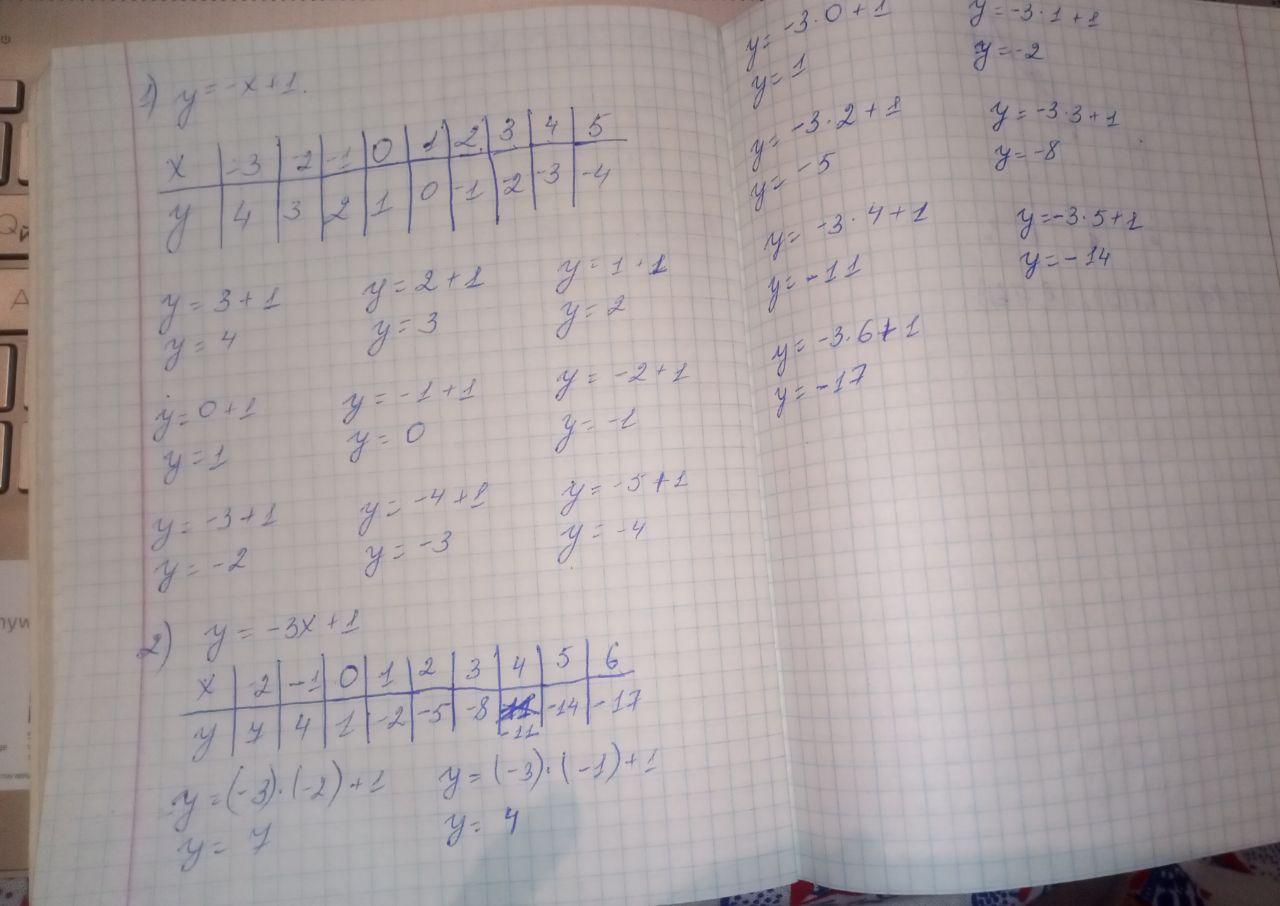 1) y = -x + 1.
x | -3 | -2 | -1 | 0 | 1 | 2 | 3 | 4 | 5
y | 4 | 3 | 2 | 1 | 0 | -1 | -2 | -3 | -4
y = 3 + 1 y = 2 + 1 y = 1 + 1
y = 4 y = 3 y = 2
y = 0 + 1 y = -1 + 1 y = -2 + 1
y = 1 y = 0 y = -1
y = -3 + 1 y = -4 + 1 y = -5 + 1
y = -2 y = -3 y = -4
2) y = -3x + 1
x | -2 | -1 | 0 | 1 | 2 | 3 | 4 | 5 | 6
y | 7 | 4 | 1 | -2 | -5 | -8 | -11 | -14 | -17
y = (-3) · (-2) + 1 y = (-3) · (-1) + 1
y = 7 y = 4
y = -3 · 0 + 1 y = -3 · 1 + 1
y = 1 y = -2
y = -3 · 2 + 1 y = -3 · 3 + 1
y = -5 y = -8
y = -3 · 4 + 1 y = -3 · 5 + 1
y = -11 y = -14
y = -3 · 6 + 1
y = -17
Q Й
A